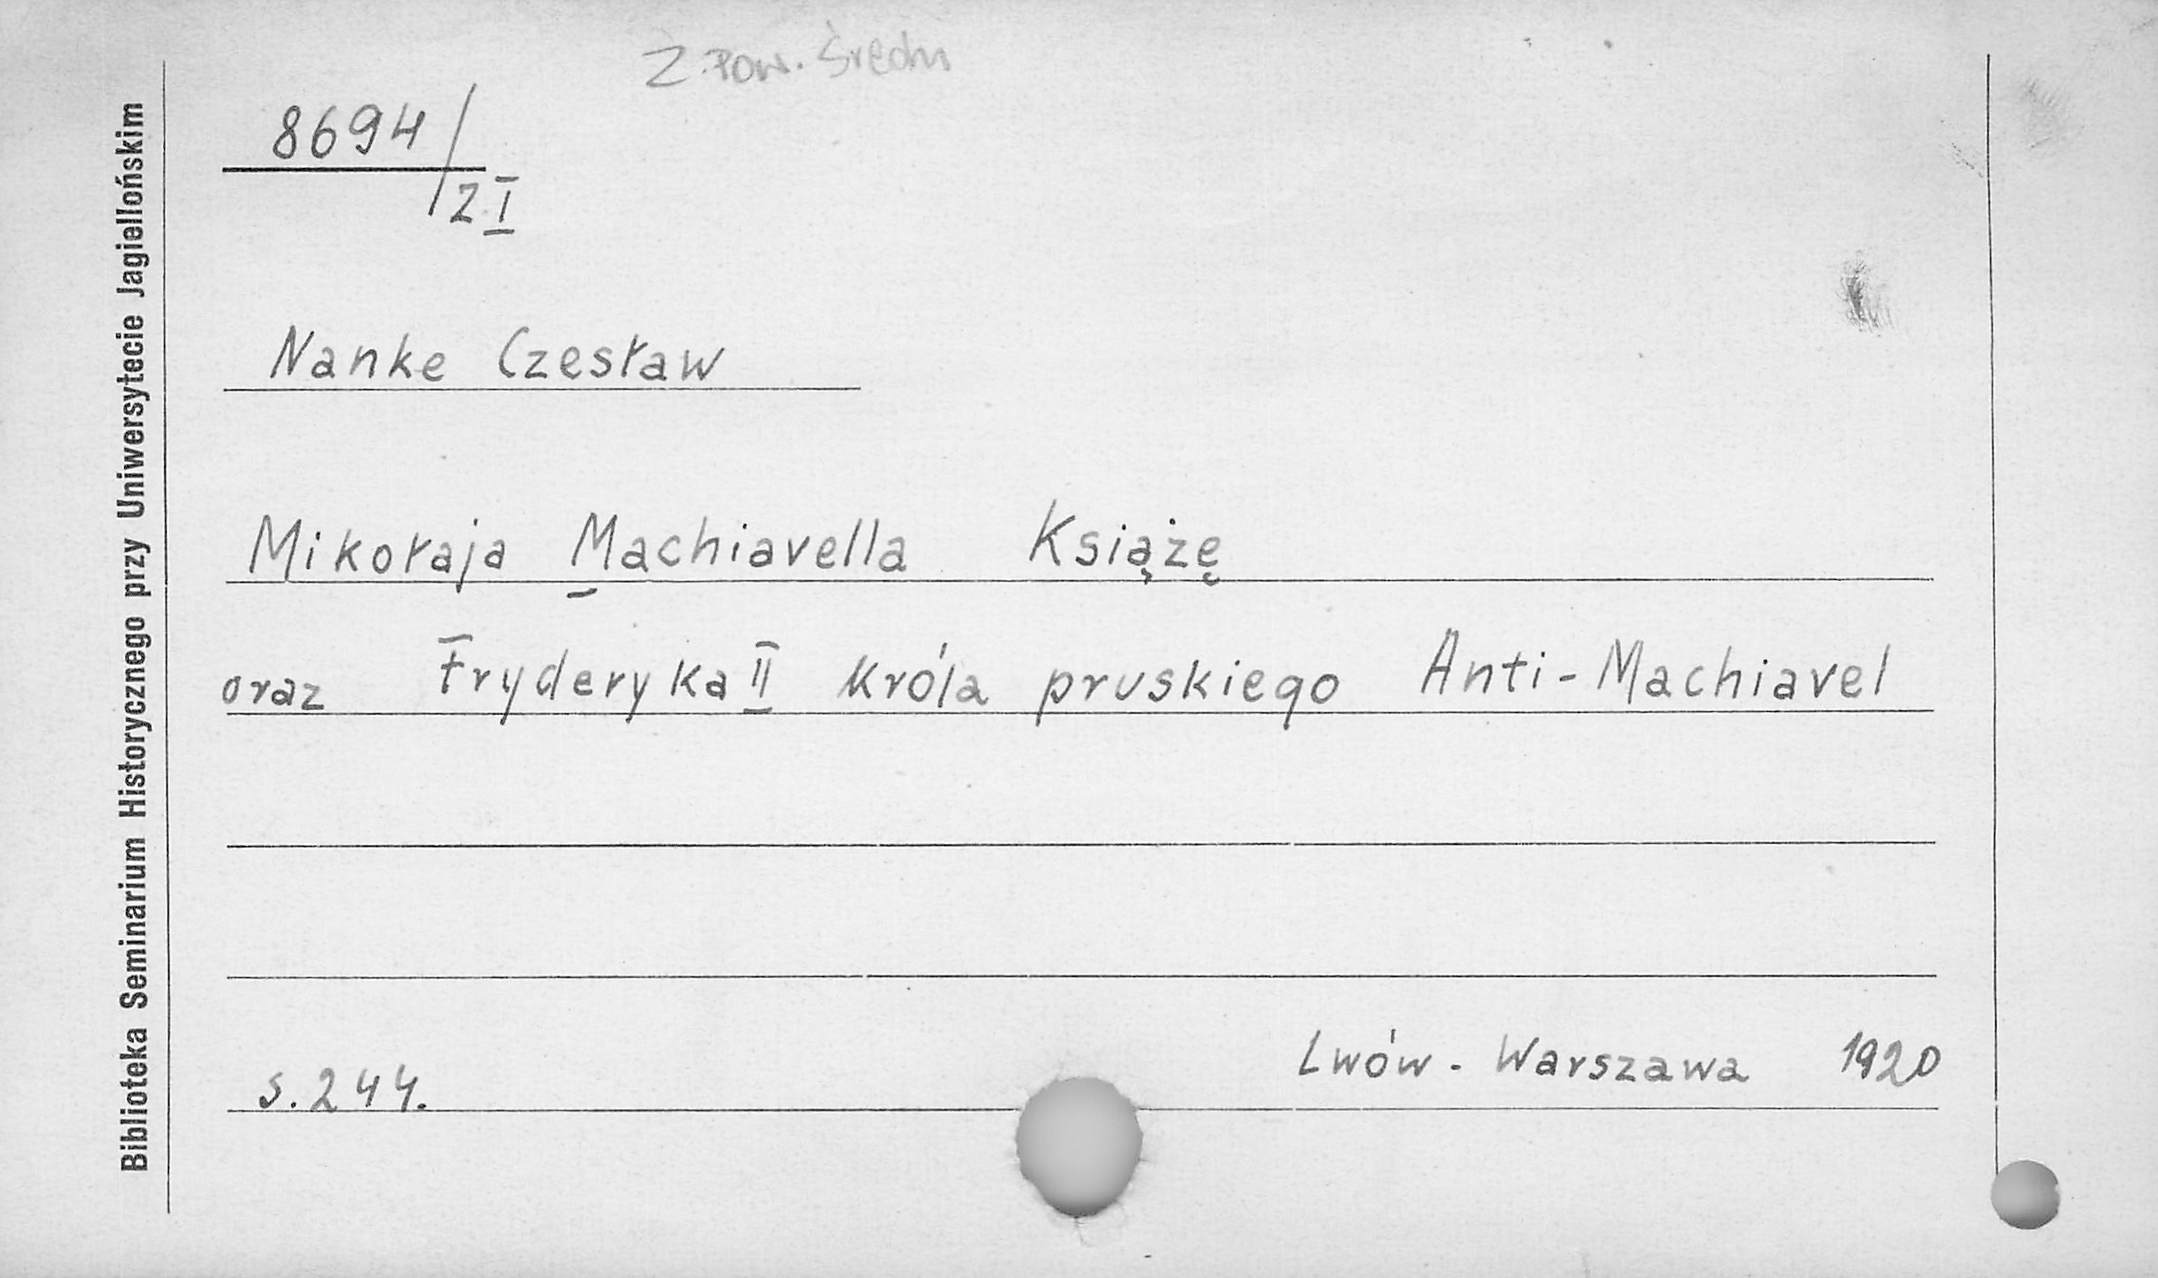 Z. Pow. Średn
8694/
2 I
Nanke Czesław
Mikołaja Machiavella Książę
oraz Fryderyka II Króla pruskiego Anti-Machiavel
s. 244.
Lwów - Warszawa 1920
Biblioteka Seminarium Historycznego przy Uniwersytecie Jagiellońskim